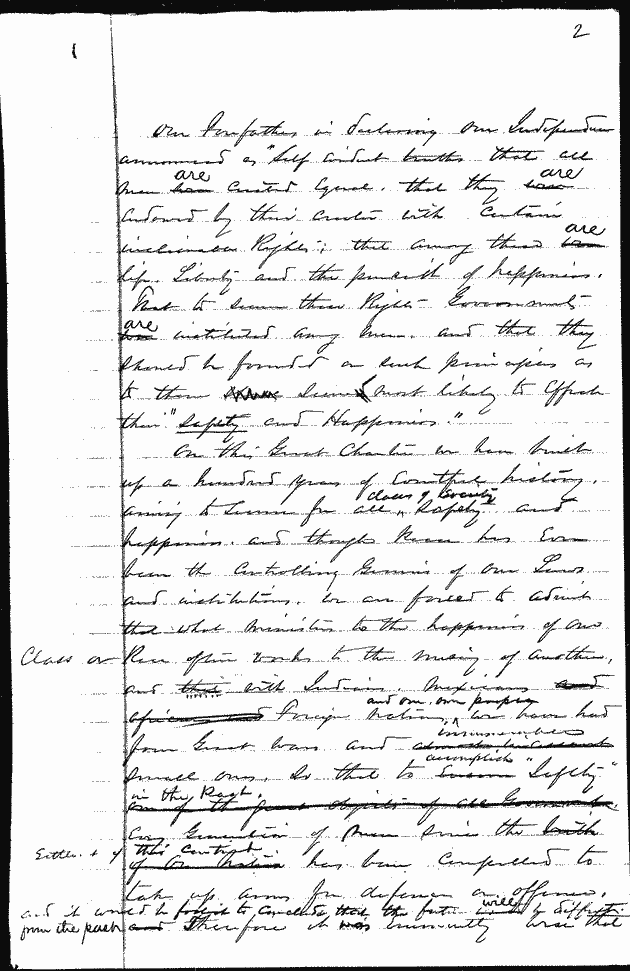 2
Our Forefathers in declaring our Independence
announced as "Self evident truths that all
men are created Equal. that they are
endowed by their creator with certain
inalienable Rights; that among these are
life. Liberty and the pursuit of happiness.
That to secure these Rights Governments
are instituted among men. and that they
should be founded on such principles as
to them seemed most likely to Effect
their "Safety and Happiness."
On this Great Charter we have built
up a hundred years of Eventful history.
aiming to secure for all classes of Society "Safety and
happiness. and though Reason has Ever
been the Controlling Genius of our Laws
and institutions. we are forced to admit
that what ministers to the happiness of one
Class or Race often works to the misery of another,
and with Indians. Mexicans and
Foreign Nations, and our own people we have had
four Great wars and innumerable
small ones. So that to accomplish "Safety"
in the Past.
Every Generation of men since the
of this Continent has been Compelled to
take up arms for defence or offence.
and it would be to conclude that the future will be different
from the past Therefore it eminently wise that